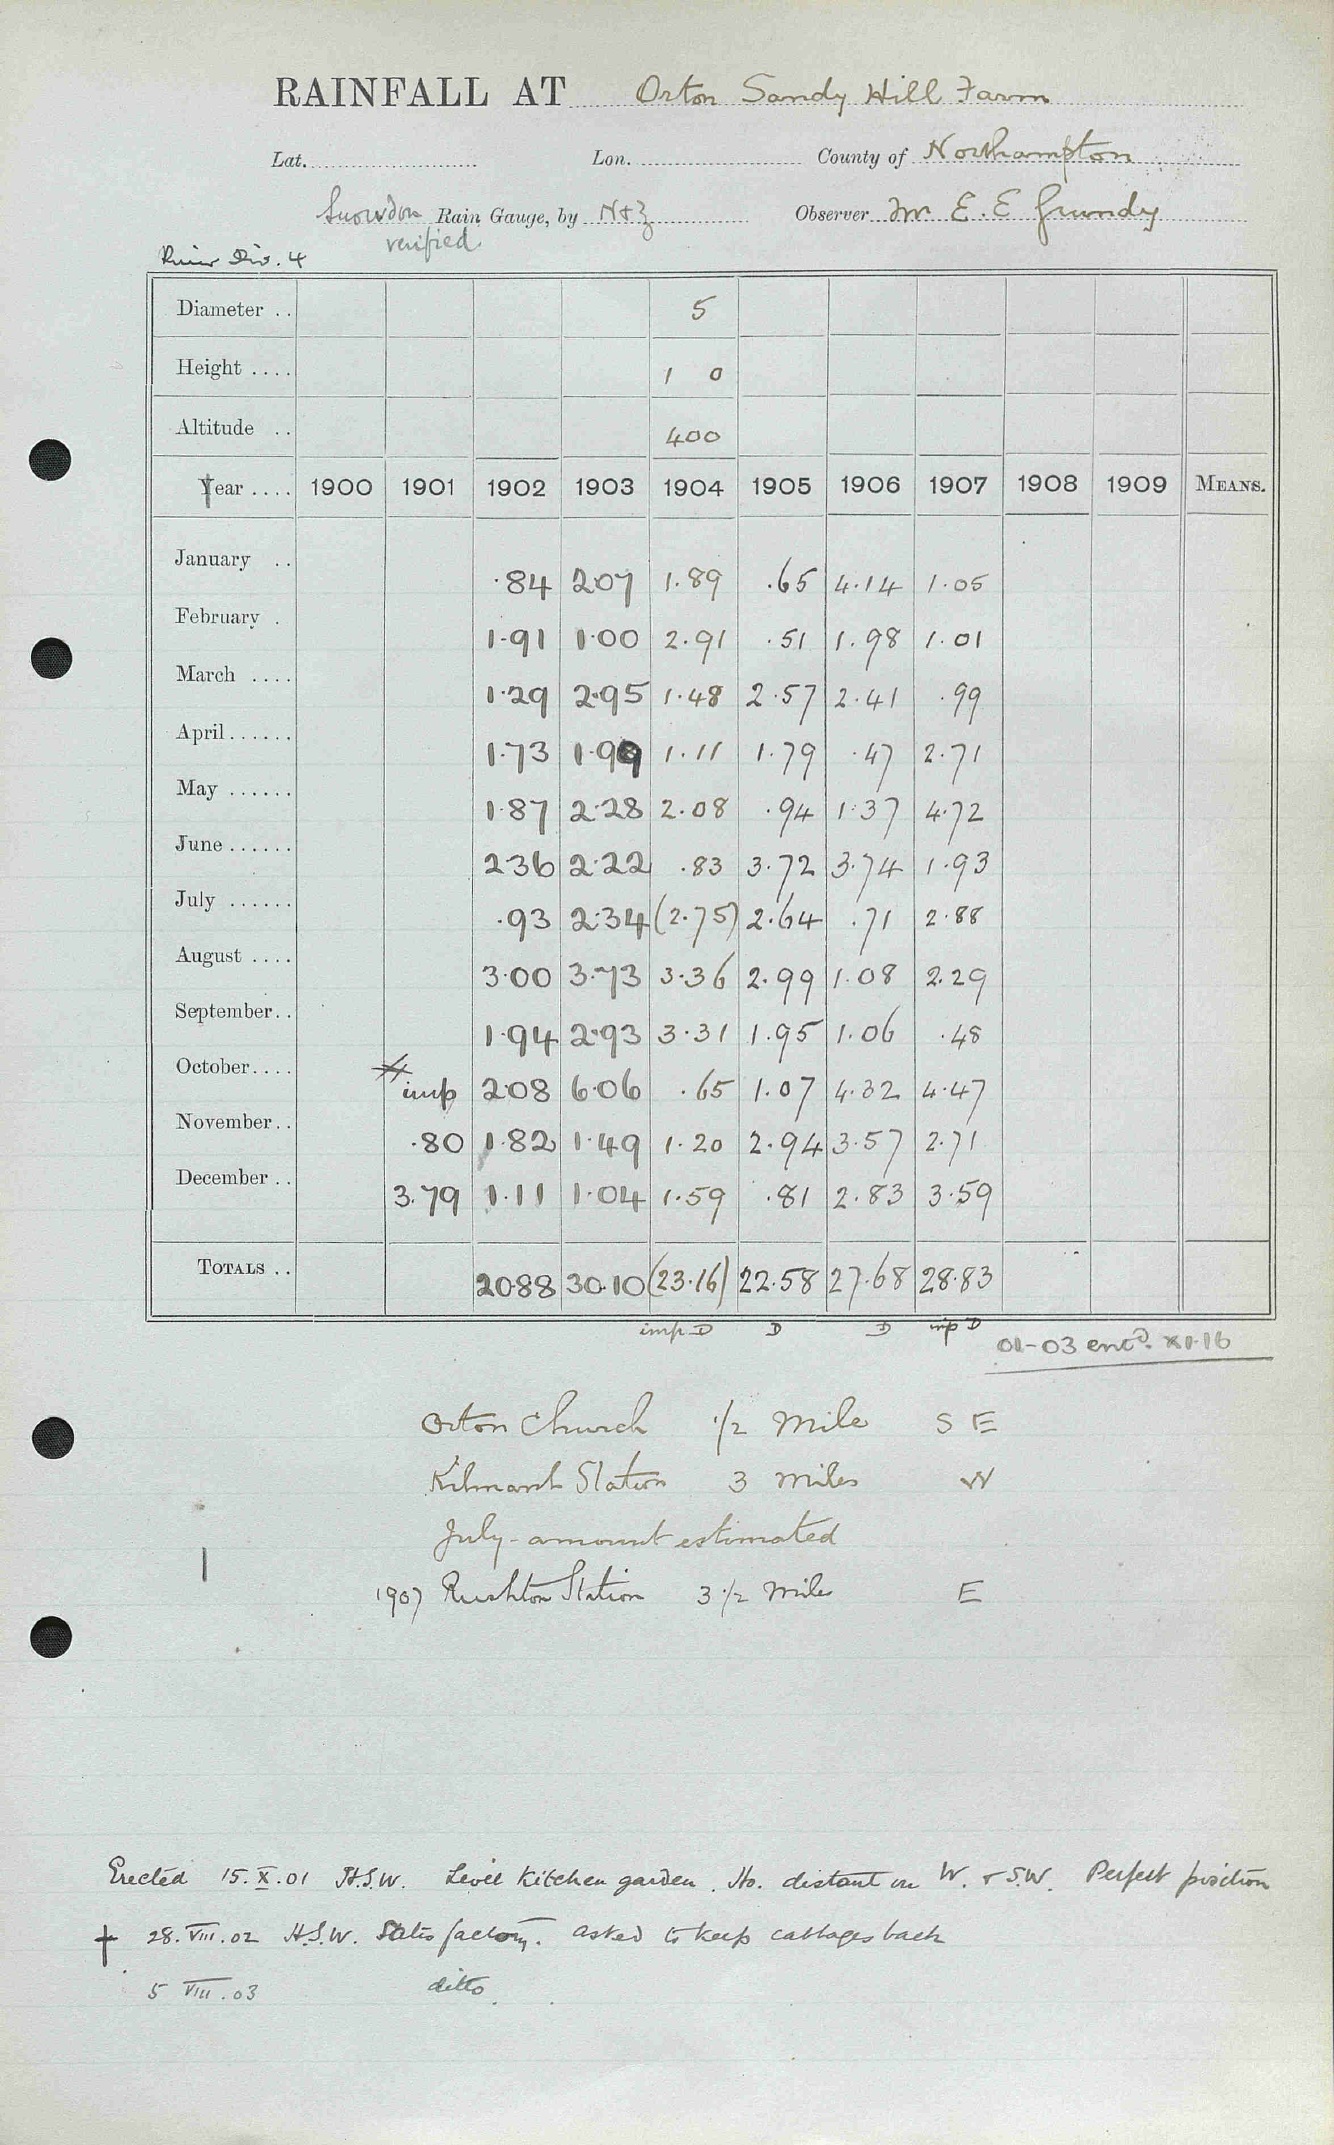 RAINFALL AT Orton Sandy Hill Farm
Lat. Lon. County of Northampton
Snowdon Rain Gauge, by N+Z Observer Mr E. E Grundy
verified
River Div. 4
Diameter .. 5
Height .... 1 0
Altitude .. 400
Year .... 1900 1901 1902 1903 1904 1905 1906 1907 1908 1909 MEANS.
January .. .84 2.07 1.89 .65 4.14 1.05
February . 1.91 1.00 2.91 .51 1.98 1.01
March .... 1.29 2.95 1.48 2.57 2.41 .99
April...... 1.73 1.99 1.11 1.79 .47 2.71
May ...... 1.87 2.28 2.08 .94 1.37 4.72
June...... 2.36 2.22 .83 3.72 3.74 1.93
July ...... .93 2.34 (2.75) 2.64 .71 2.88
August .... 3.00 3.73 3.36 2.99 1.08 2.29
September.. 1.94 2.93 3.31 1.95 1.06 .48
October.... imp 2.08 6.06 .65 1.07 4.32 4.47
November.. .80 1.82 1.49 1.20 2.94 3.57 2.71
December .. 3.79 1.11 1.04 1.59 .81 2.83 3.59
TOTALS .. 20.88 30.10 (23.16) 22.58 27.68 28.83
imp D D D imp D
01-03 entd. XI.16
Orton Church 1/2 Mile S E
Kilmarsh Station 3 Miles W
July - amount estimated
1907 Rushton Station 3 1/2 Miles E
Erected 15.X.01 H.S.W. Level kitchen garden. Ho. distant on W. & S.W. Perfect position
† 28.VIII.02 H.S.W. Satisfactory. asked to keep cabbages back
5 VIII.03 ditto.